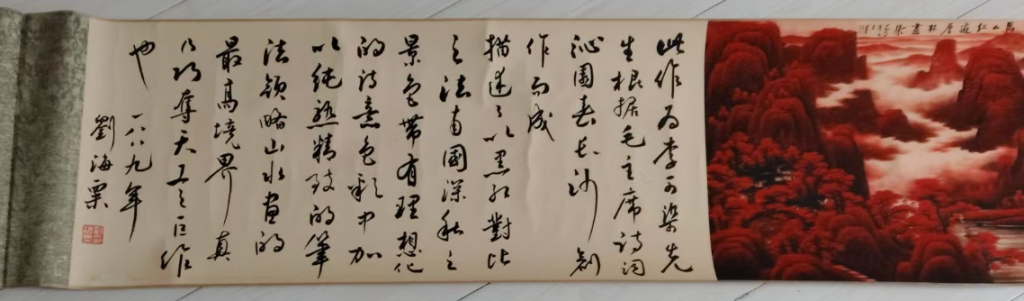 萬山红遍層林盡染
此作为李可染先
生根据毛主席诗词
沁園春长沙創
作而成
描述之以黑红對比
之法南國深秋之
景色带有理想化
的诗意色彩中加
以纯熟精致的筆
法领略山水画的
最高境界真
乃巧奪天工之巨作
也
一八八九年
劉海粟